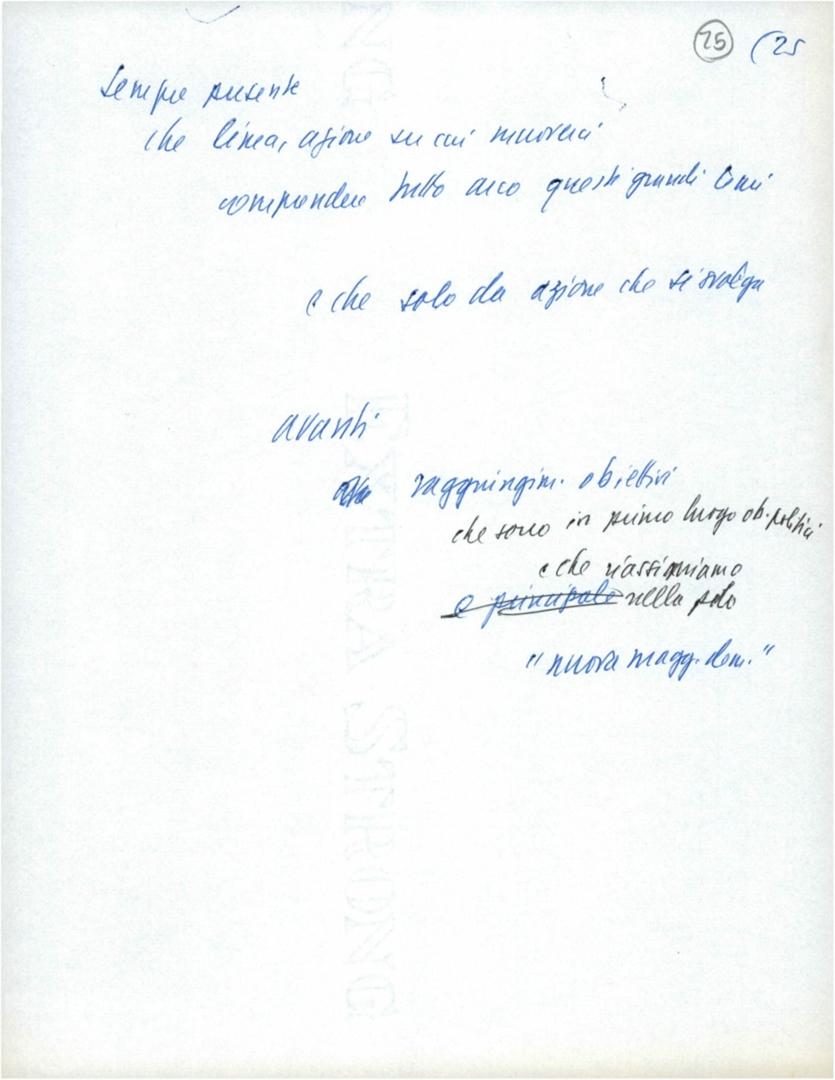 25 (25
sempre presente
che linea, azione su cui muoverci
comprendere tutto arco questi grandi temi
e che solo da azione che si svolga
avanti
raggiungim. obiettivi
che sono in primo luogo ob. politici
e che riassumiamo
e principale nella
"nuova magg. dem."
EXTRA STRONG